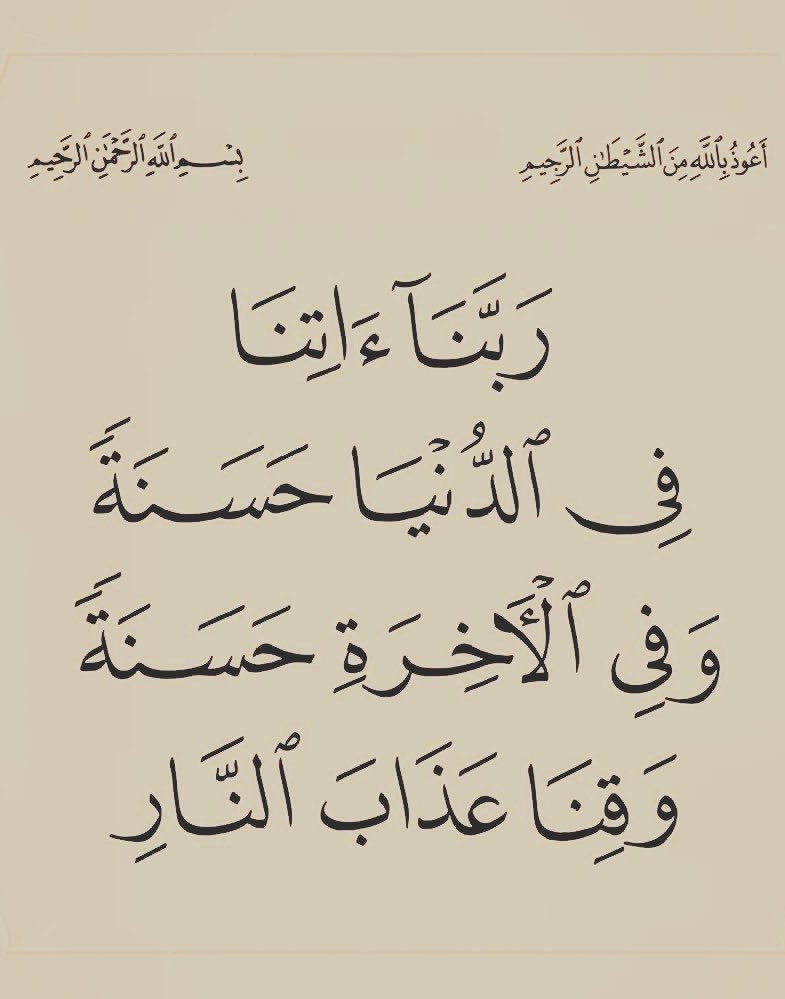 أَعُوذُ بِٱللَّهِ مِنَ ٱلشَّيْطَٰنِ ٱلرَّجِيمِ
بِسْمِ ٱللَّهِ ٱلرَّحْمَٰنِ ٱلرَّحِيمِ
رَبَّنَآ ءَاتِنَا
فِى ٱلدُّنْيَا حَسَنَةً
وَفِي ٱلْأَخِرَةِ حَسَنَةً
وَقِنَا عَذَابَ ٱلنَّارِ